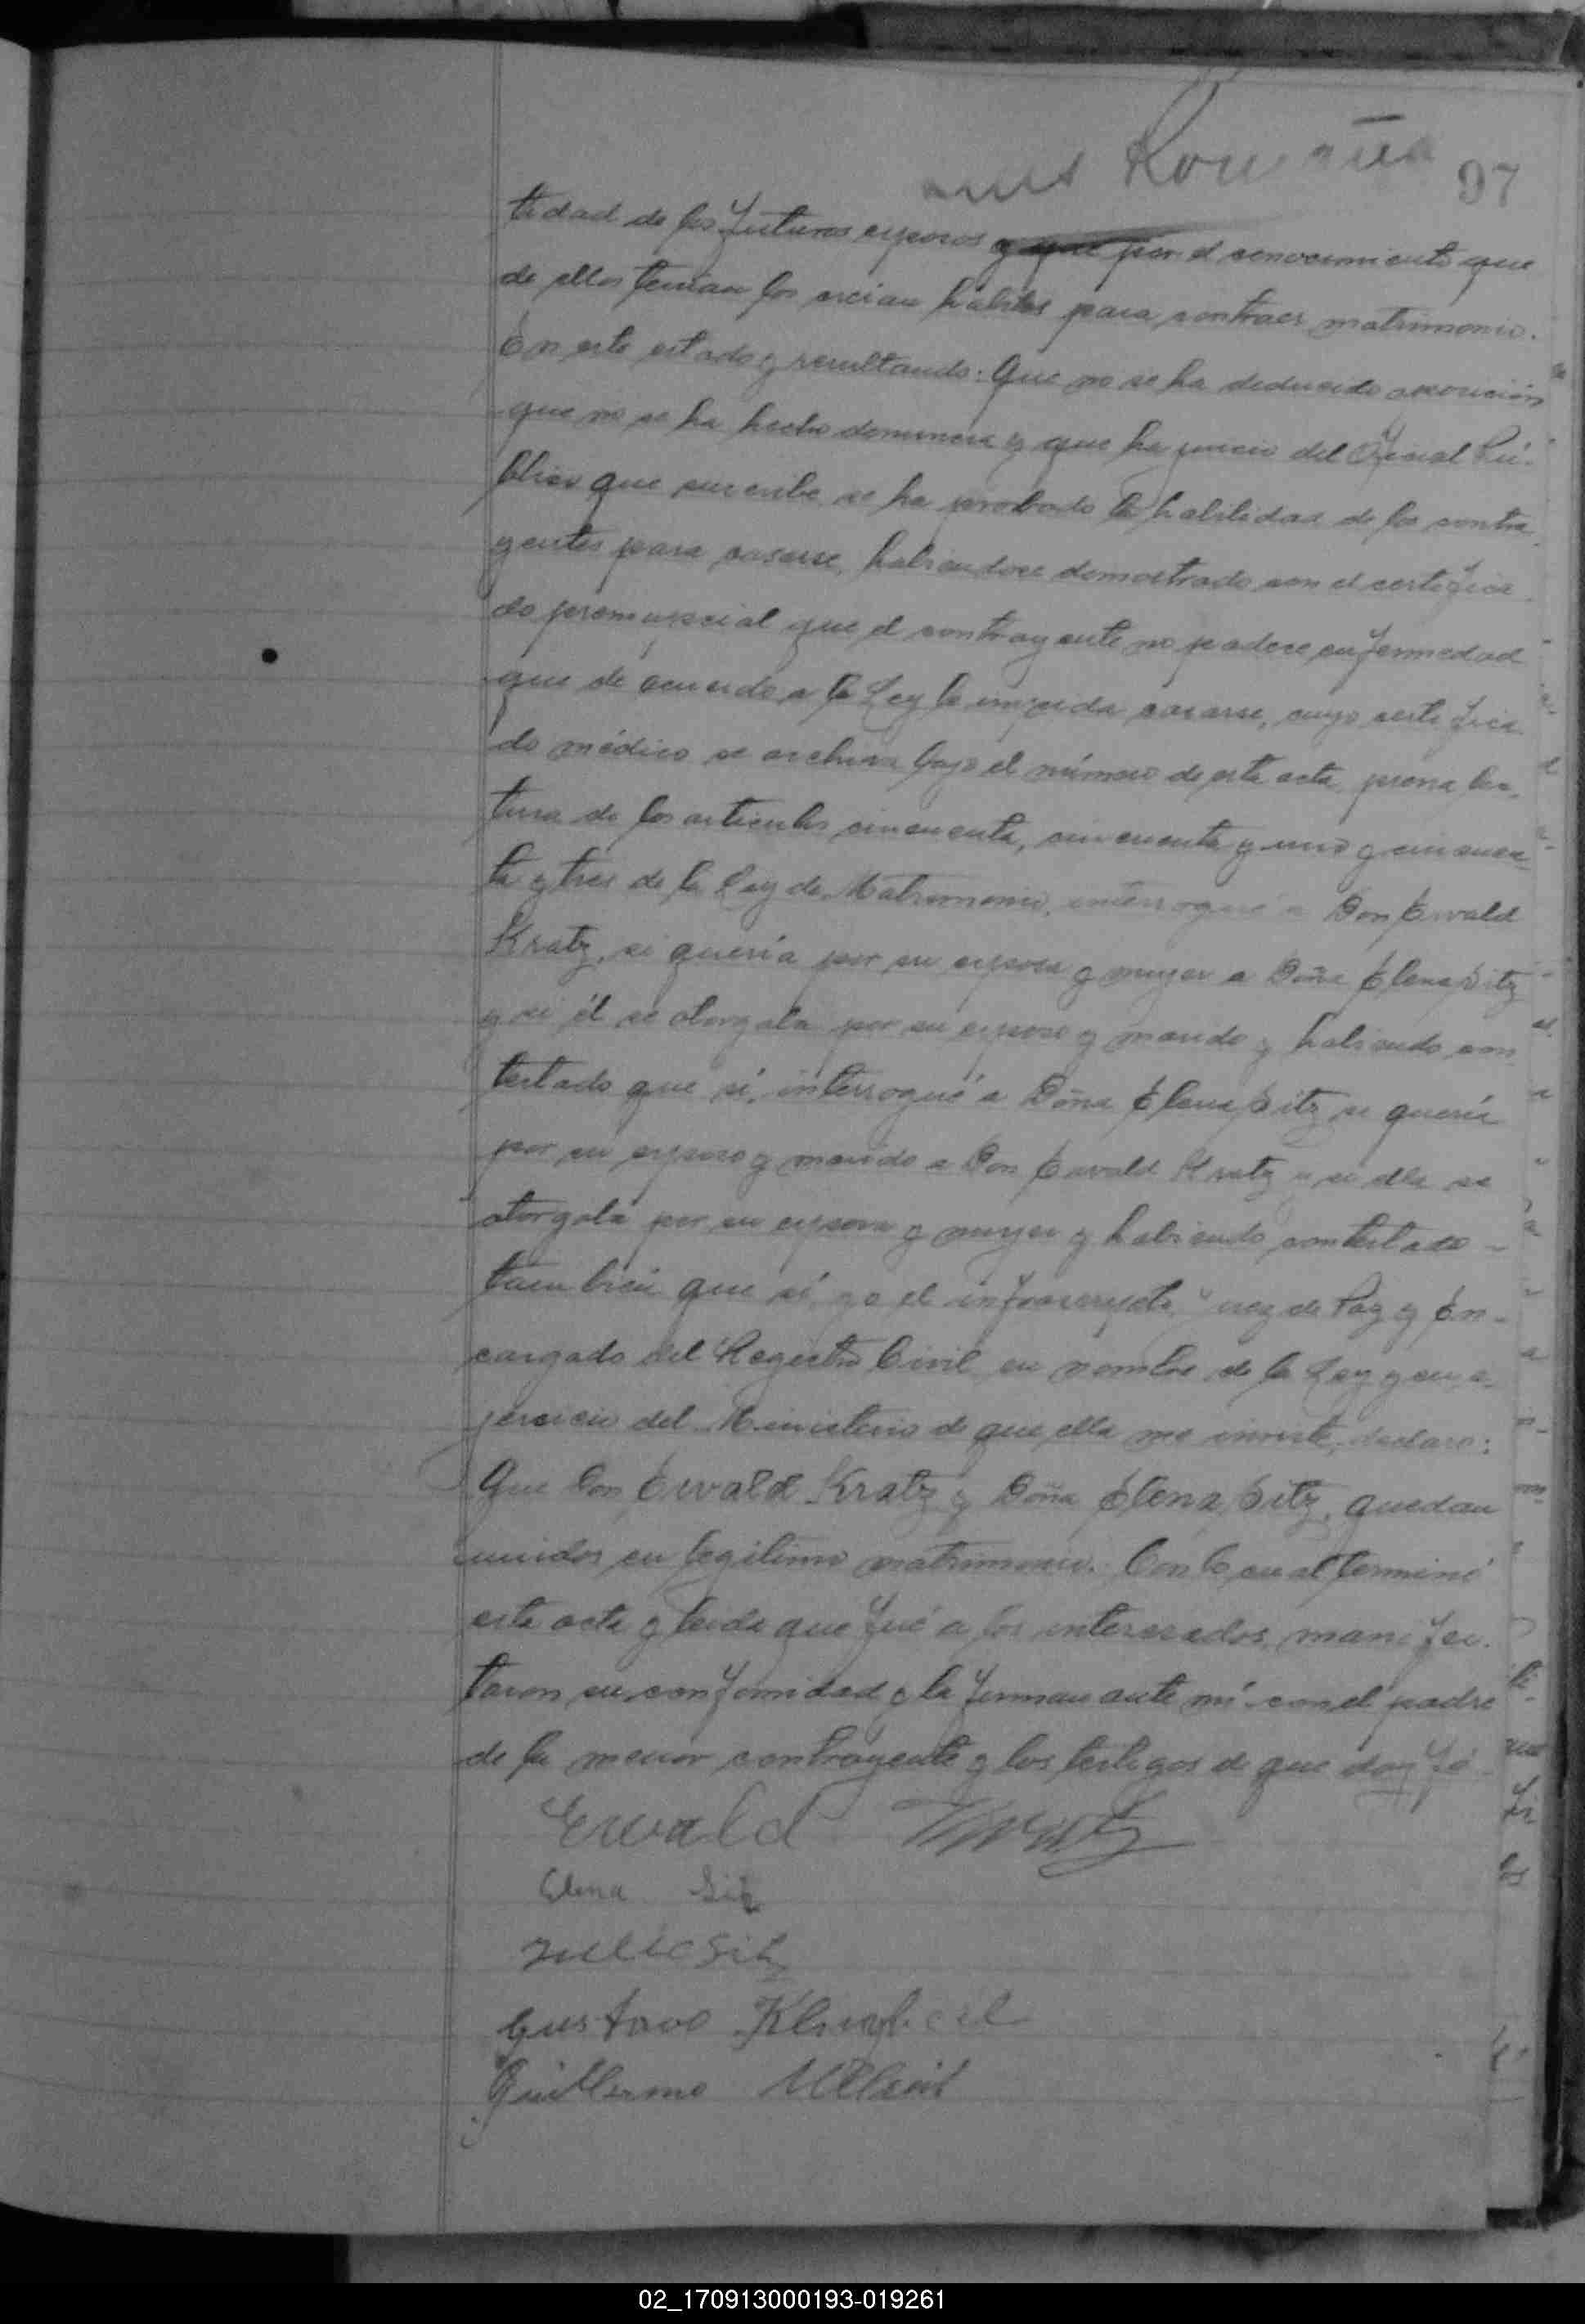 97
tidad de los futuros esposos y que por el conocimiento que
de ellos tenían los creían hábiles para contraer matrimonio.
En este estado y resultando: Que no se ha deducido oposición
que no se ha hecho denuncia y que ha juicio del Oficial Pú-
blico que suscribe se ha probado la habilidad de los contra
yentes para casarse, habiendose demostrado con el certifica
do prenupcial que el contrayente no padece enfermedad
que de acuerdo a la Ley le impida casarse, cuyo certifica
do médico se archiva bajo el número de esta acta, previa lec-
tura de los articulos cincuenta, cincuenta y uno y cincuen
ta y tres de la Ley de Matrimonio, interrogué a Don Ewald
Kratz, si quería por su esposa y mujer a Doña Elena Sitz
y si él se otorgaba por su esposo y marido y habiendo con
testado que sí, interrogué a Doña Elena Sitz si quería
por su esposo y marido a Don Ewald Kratz y si ella se
otorgaba por su esposa y mujer y habiendo contestado -
tambien que sí yo el infrascripto, Juez de Paz y En-
cargado del Registro Civil en nombre de la Ley y en e-
jercicio del Ministerio de que ella me inviste, declaro:
Que Don Ewald Kratz y Doña Elena Sitz, quedan
unidos en legitimo matrimonio. Con lo cual terminé
esta acta y leida que fué a los interesados, manifes-
taron su conformidad y la firman ante mí con el padre
de la menor contrayente y los testigos de que doy fé
Ewald Kratz
Elena Sitz
Sitz
Gustavo
Guillermo
02_170913000193-019261